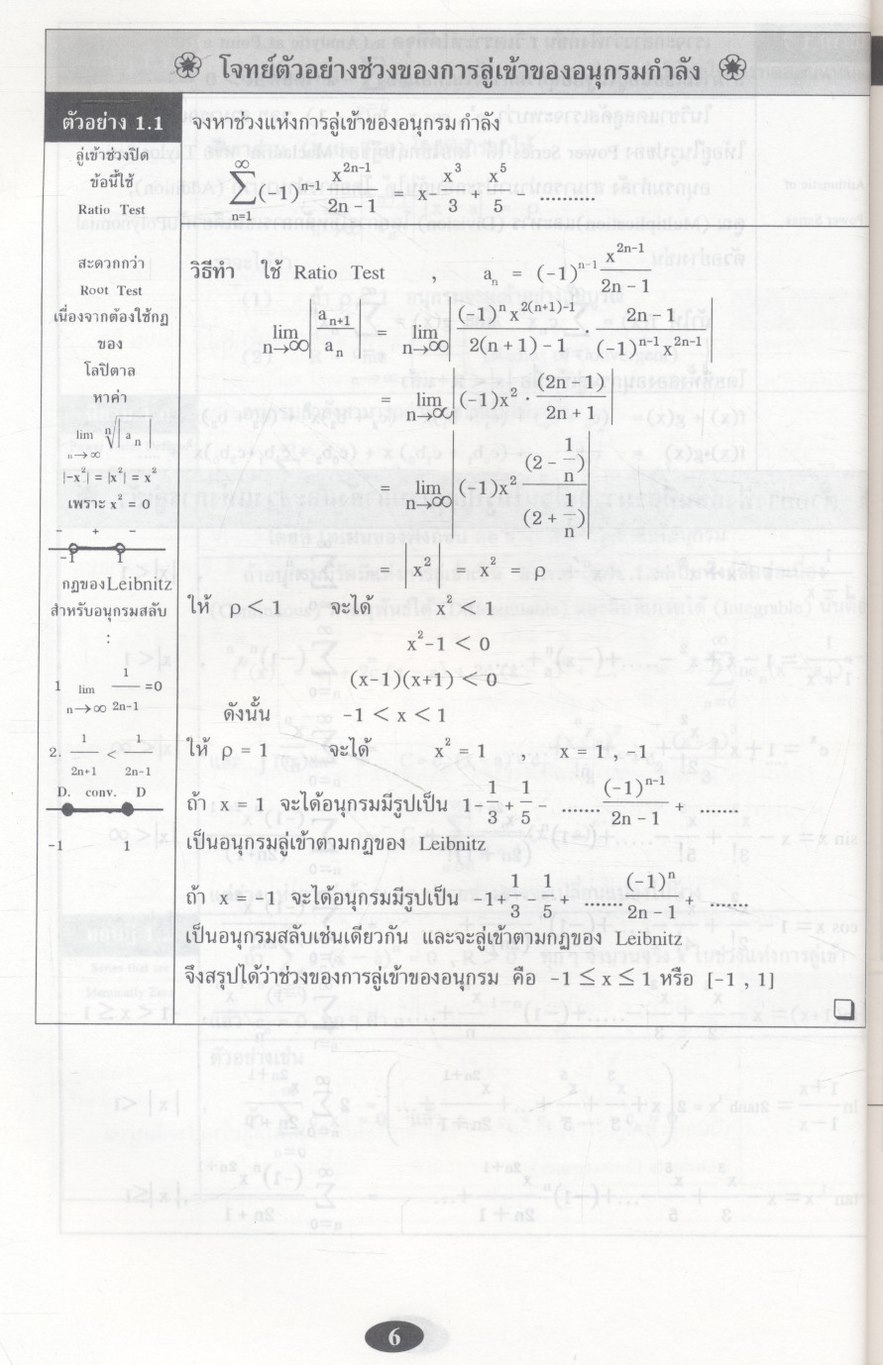 โจทย์ตัวอย่างช่วงของการลู่เข้าของอนุกรมกำลัง
ตัวอย่าง 1.1
จงหาช่วงแห่งการลู่เข้าของอนุกรม กำลัง
ลู่เข้าช่วงปิด
ข้อนี้ใช้
Ratio Test
∑_{n=1}^{∞} (-1)^{n-1} x^{2n-1}/(2n - 1) = x - x^3/3 + x^5/5 ...........
สะดวกกว่า
Root Test
เนื่องจากต้องใช้กฎ
ของ
โลปิตาล
หาค่า
lim_{n→∞} ⁿ√|a_n|
|-x^2| = |x^2| = x^2
เพราะ x^2 = 0
- + -
-1 1
กฎของLeibnitz
สำหรับอนุกรมสลับ
:
1 lim_{n→∞} 1/(2n-1) =0
2. 1/(2n+1) < 1/(2n-1)
D. conv. D
-1 1
วิธีทำ ใช้ Ratio Test , a_n = (-1)^{n-1} x^{2n-1}/(2n - 1)
lim_{n→∞} |a_{n+1}/a_n| = lim_{n→∞} |(-1)^n x^{2(n+1)-1}/(2(n + 1) - 1) · (2n - 1)/((-1)^{n-1} x^{2n-1})|
= lim_{n→∞} |(-1)x^2 · (2n - 1)/(2n + 1)|
= lim_{n→∞} |(-1)x^2 (2 - 1/n)/(2 + 1/n)|
= |x^2| = x^2 = ρ
ให้ ρ < 1 จะได้ x^2 < 1
x^2-1 < 0
(x-1)(x+1) < 0
ดังนั้น -1 < x < 1
ให้ ρ = 1 จะได้ x^2 = 1 , x = 1 , -1
ถ้า x = 1 จะได้อนุกรมมีรูปเป็น 1 - 1/3 + 1/5 - ....... (-1)^{n-1}/(2n - 1) + .......
เป็นอนุกรมลู่เข้าตามกฎของ Leibnitz
ถ้า x = -1 จะได้อนุกรมมีรูปเป็น -1 + 1/3 - 1/5 + ....... (-1)^n/(2n - 1) + .......
เป็นอนุกรมสลับเช่นเดียวกัน และจะลู่เข้าตามกฎของ Leibnitz
จึงสรุปได้ว่าช่วงของการลู่เข้าของอนุกรม คือ -1 ≤ x ≤ 1 หรือ [-1 , 1]
6